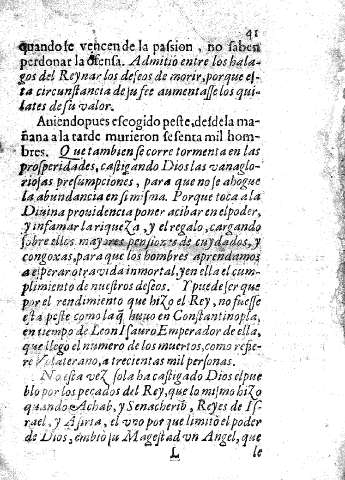 41
quando se vencen de la passion, no saben
perdonar la ofensa. Admitio entre los hala-
gos del Reynar los deseos de morir, porque es-
ta circunstancia de su fee aumentasse los qui-
lates de su valor.
Auiendo pues escogido peste, desde la ma-
ñana a la tarde murieron sesenta mil hom-
bres. Que tambien se corre tormenta en las
prosperidades, castigando Dios las vanaglo-
riosas presumpciones, para que no se ahogue
la abundancia en si misma. Porque toca a la
Diuina prouidencia poner acibar en el poder,
y infamar la riqueza, y el regalo, cargando
sobre ellos mayores pensiones de cuydados, y
congoxas, para que los hombres aprendamos
a esperar otra vida inmortal, y en ella el cum-
plimiento de nuestros deseos. Y puede ser que
por el rendimiento que hizo el Rey, no fuesse
esta peste como la q̃ huuo en Constantinopla,
en tiempo de Leon Isauro Emperador de ella,
que llego el numero de los muertos, como refie-
re Volaterano, a trecientas mil personas.
No esta vez sola ha castigado Dios el pue
blo por los pecados del Rey, que lo mismo hizo
quando Achab, y Senacherib, Reyes de Is-
rael, y Asiria, el vno por que limitò el poder
de Dios, embiò su Magestad vn Angel, que
L le